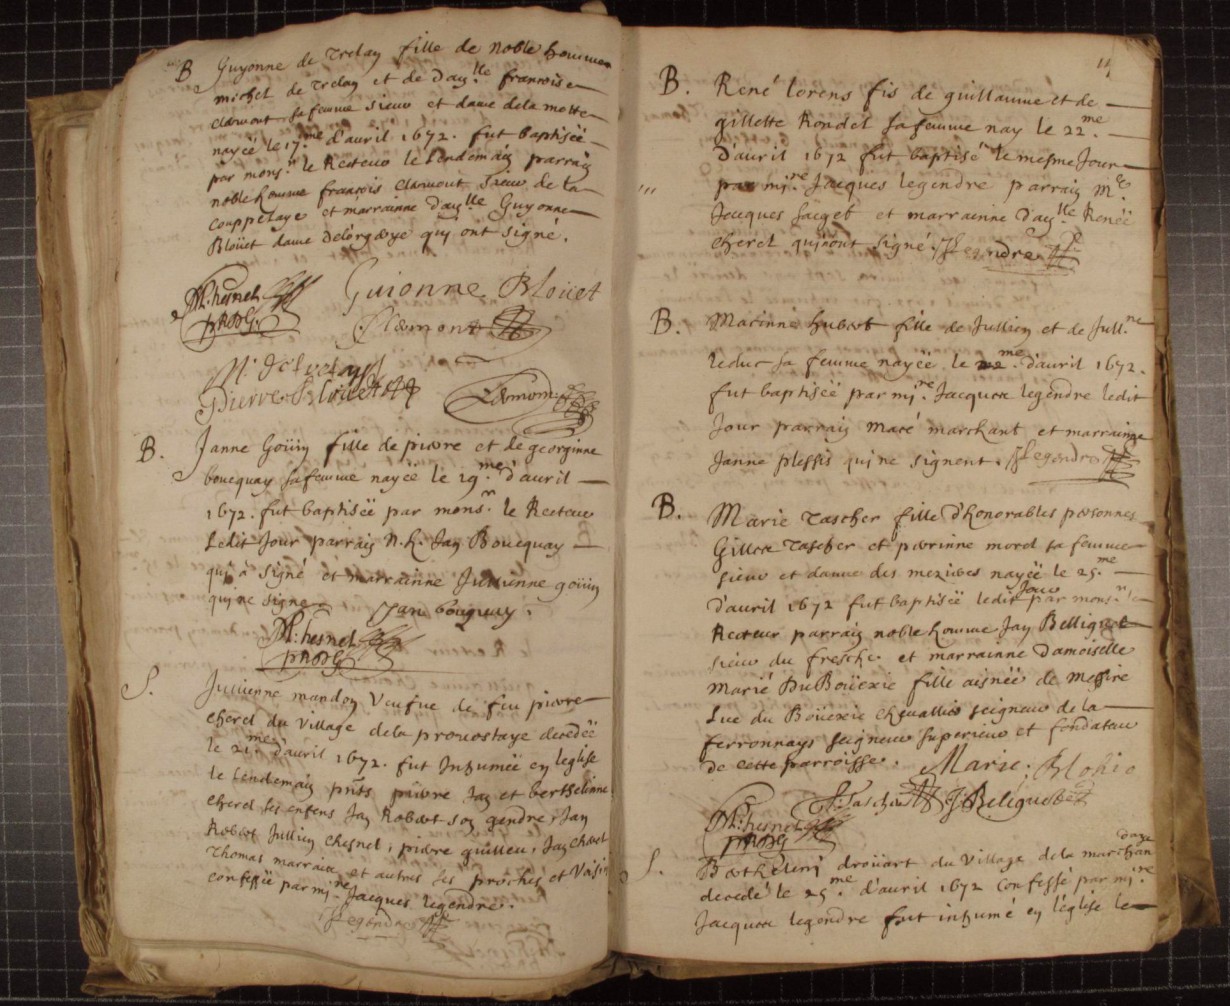 B Guyonne de Trelan fille de noble homme
michel de Trelan et de Dauy.lle francoise
Clamont sa femme sieur et dame de la mette
nayëe le 17.me d'auril 1672. fut baptisëe
par mons.r le Recteur le lendemain parrain
noble homme francois Clamont Sieur de la
Couppelaye et marrainne dauy.lle Guyonne
Bloüet dame qui ont signé.
Chesnel
pRBDG.
Guionne Blouet
Clamont
Pierre Blouet
Clamont
B. Janne Goüin fille de pierre et de georginne
boucquay sa femme nayëe le 19.me d'auril
1672. fut baptisëe par mons.r le Recteur
Ledit Jour parrain N. h. Jan Boucquay
qui à signé et marrainne Jullienne goüin
qui ne signe Jan bouquay.
Chesnel
pRBDG
S. Jullienne mandon Veufue de feu pierre
cherel du village de la prouostaye decedëe
le 21.me d'auril 1672. fut Inhumëe en leglise
le lendemain pnts pierre Jan et berthelinne
cherel ses enfens Jan Robert son gendre, Jan
Robert Jullien Chesnel, pierre guilleu, Jan
Thomas marraise et autres ses proches et Voisin
confessëe par mi.re Jacques legendre.
JLegendre
14
B. René lorens fis de guillaume et de
gillette Rondel sa femme nay le 22.me
d'auril 1672 fut baptisé le mesme Jour
par mi.re Jacques legendre parrain M.e
Jacques Saget et marrainne dauy.lle Renëe
cherel qui ont signé. JLegendre
B. Macinne hubert fille de Jullien et de Jull.ne
leduc sa femme nayëe le 22.me d'auril 1672.
fut baptisëe par mi.re Jacques legendre ledit
Jour parrain macé marchant et marrainne
Janne plessis qui ne signent. JLegendre
B. Marie Tascher fille d'honorables personnes
Gilles Tascher et perrinne morel sa femme
sieur et damme des nayëe le 25.me
d'auril 1672 fut baptisëe ledit Jour par mons.r le
Recteur parrain noble homme Jan Belliguet
sieur du fresche. et marrainne Damoiselle
Marie Du Boüexic fille aisnëe de Messire
Luc du Boüexic Cheuallier seigneur de la
ferronnays seigneur superieur et fondateur
de cette parroisse. Marie. Blohio
Tascher J Beliguet
Chesnel
pRBDG
S. Berthelemi droüart du village de la marchan
daye
decedé le 25.me d'auril 1672 confessé par mi.re
Jacques legendre fut inhumé en l'église le